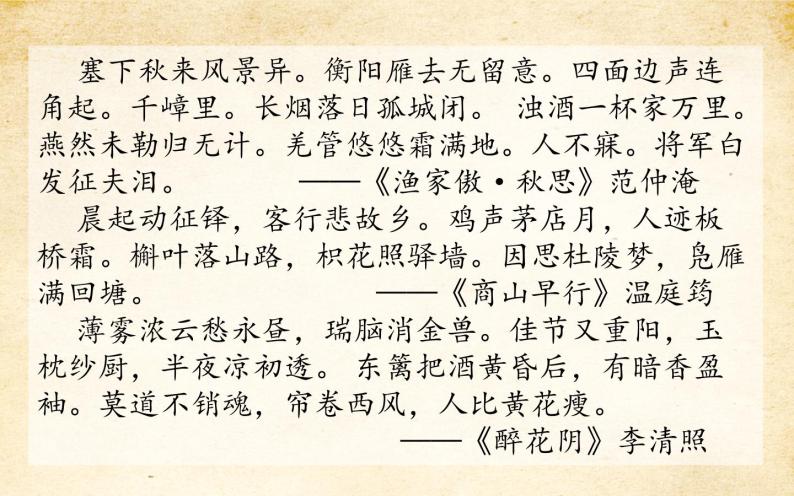 塞下秋来风景异。衡阳雁去无留意。四面边声连
角起。千嶂里。长烟落日孤城闭。 浊酒一杯家万里。
燕然未勒归无计。羌管悠悠霜满地。人不寐。将军白
发征夫泪。 ——《渔家傲·秋思》范仲淹
晨起动征铎，客行悲故乡。鸡声茅店月，人迹板
桥霜。槲叶落山路，枳花照驿墙。因思杜陵梦，凫雁
满回塘。 ——《商山早行》温庭筠
薄雾浓云愁永昼，瑞脑消金兽。佳节又重阳，玉
枕纱厨，半夜凉初透。 东篱把酒黄昏后，有暗香盈
袖。莫道不销魂，帘卷西风，人比黄花瘦。
——《醉花阴》李清照